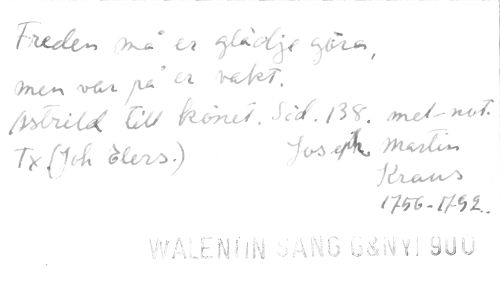 Freden må er glädje göra,
men var på er vakt.
Astrild till könet. Sid. 138. met-not.
Tx. (Joh Elers.) Joseph Martin
Kraus
1756-1792.
WALENTIN SANG G&NYI 900